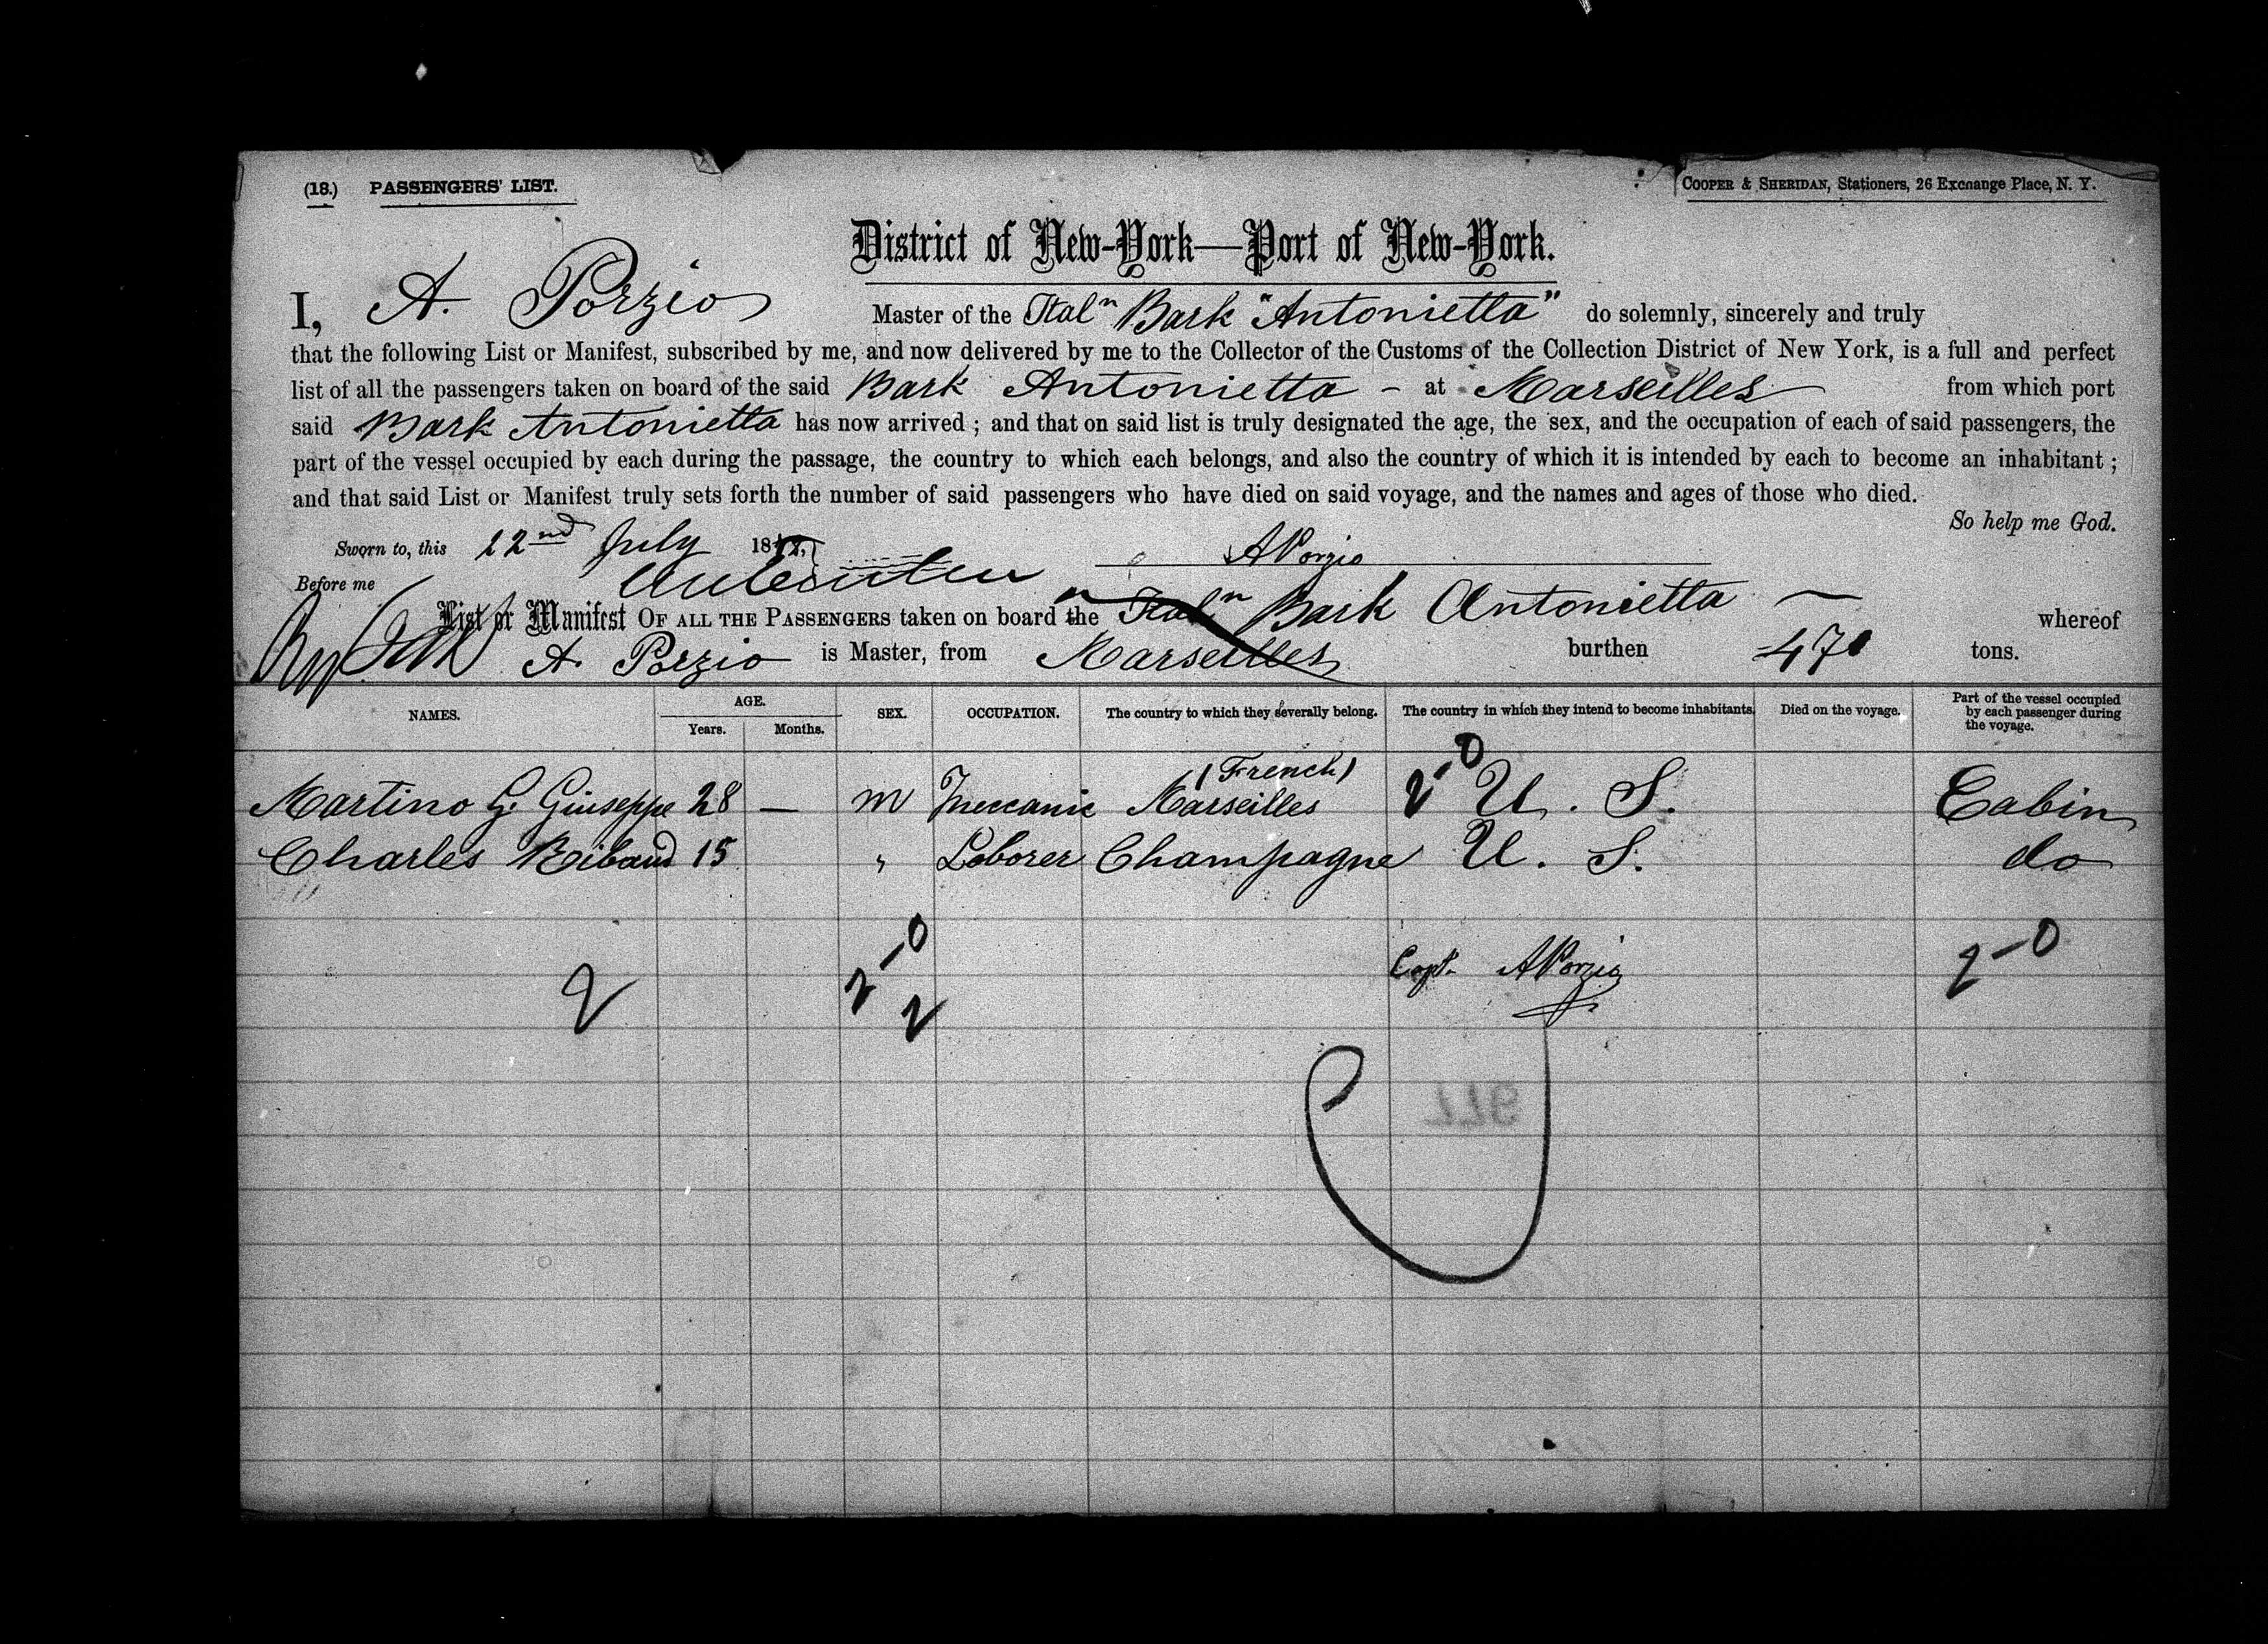 (18.) PASSENGERS' LIST.
COOPER & SHERIDAN, Stationers, 26 Exchange Place, N. Y.
District of New-York—Port of New-York.
I, A. Porzio Master of the Italⁿ Bark "Antonietta" do solemnly, sincerely and truly
that the following List or Manifest, subscribed by me, and now delivered by me to the Collector of the Customs of the Collection District of New York, is a full and perfect
list of all the passengers taken on board of the said Bark Antonietta - at Marseilles from which port
said Bark Antonietta has now arrived ; and that on said list is truly designated the age, the sex, and the occupation of each of said passengers, the
part of the vessel occupied by each during the passage, the country to which each belongs, and also the country of which it is intended by each to become an inhabitant ;
and that said List or Manifest truly sets forth the number of said passengers who have died on said voyage, and the names and ages of those who died.
So help me God.
Sworn to, this 22nd July 18
A Porzio
Before me
List or Manifest OF ALL THE PASSENGERS taken on board the Italⁿ Bark Antonietta whereof
A. Porzio is Master, from Marseilles burthen 470 tons.
NAMES. AGE. Years. Months. SEX. OCCUPATION. The country to which they severally belong. The country in which they intend to become inhabitants. Died on the voyage. Part of the vessel occupied by each passenger during the voyage.
(French) 2-0
Martino G. Giuseppe 28 — m Meccanic Marseilles U. S. Cabin
Charles Reibaud 15 " Laborer Champagne U. S. do
2 2-0 Capt. A Porzio 2-0
2
976